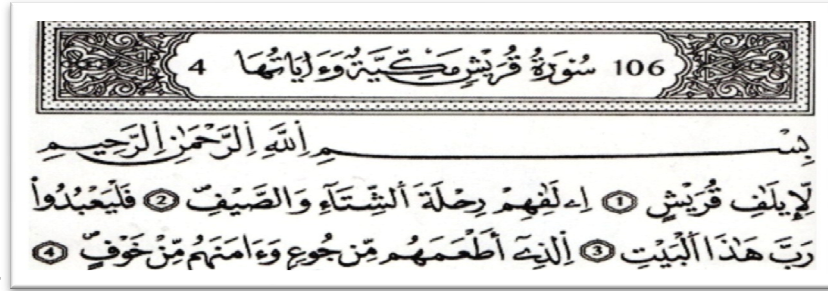 106 سُورَةُ قُرَيْشٍ مَكِّيَّةٌ وَءَايَاتُهَا 4
بِسْمِ اِ۬للَّهِ اِ۬لرَّحْمَٰنِ اِ۬لرَّحِيمِ
لِإِيلَٰفِ قُرَيْشٍ ① اِ۪لَٰفِهِمْ رِحْلَةَ اَ۬لشِّتَآءِ وَالصَّيْفِ ② فَلْيَعْبُدُواْ
رَبَّ هَٰذَا اَ۬لْبَيْتِ ③ اِ۬لذِےٓ أَطْعَمَهُم مِّن جُوعٍ وَءَامَنَهُم مِّنْ خَوْفٍ ④